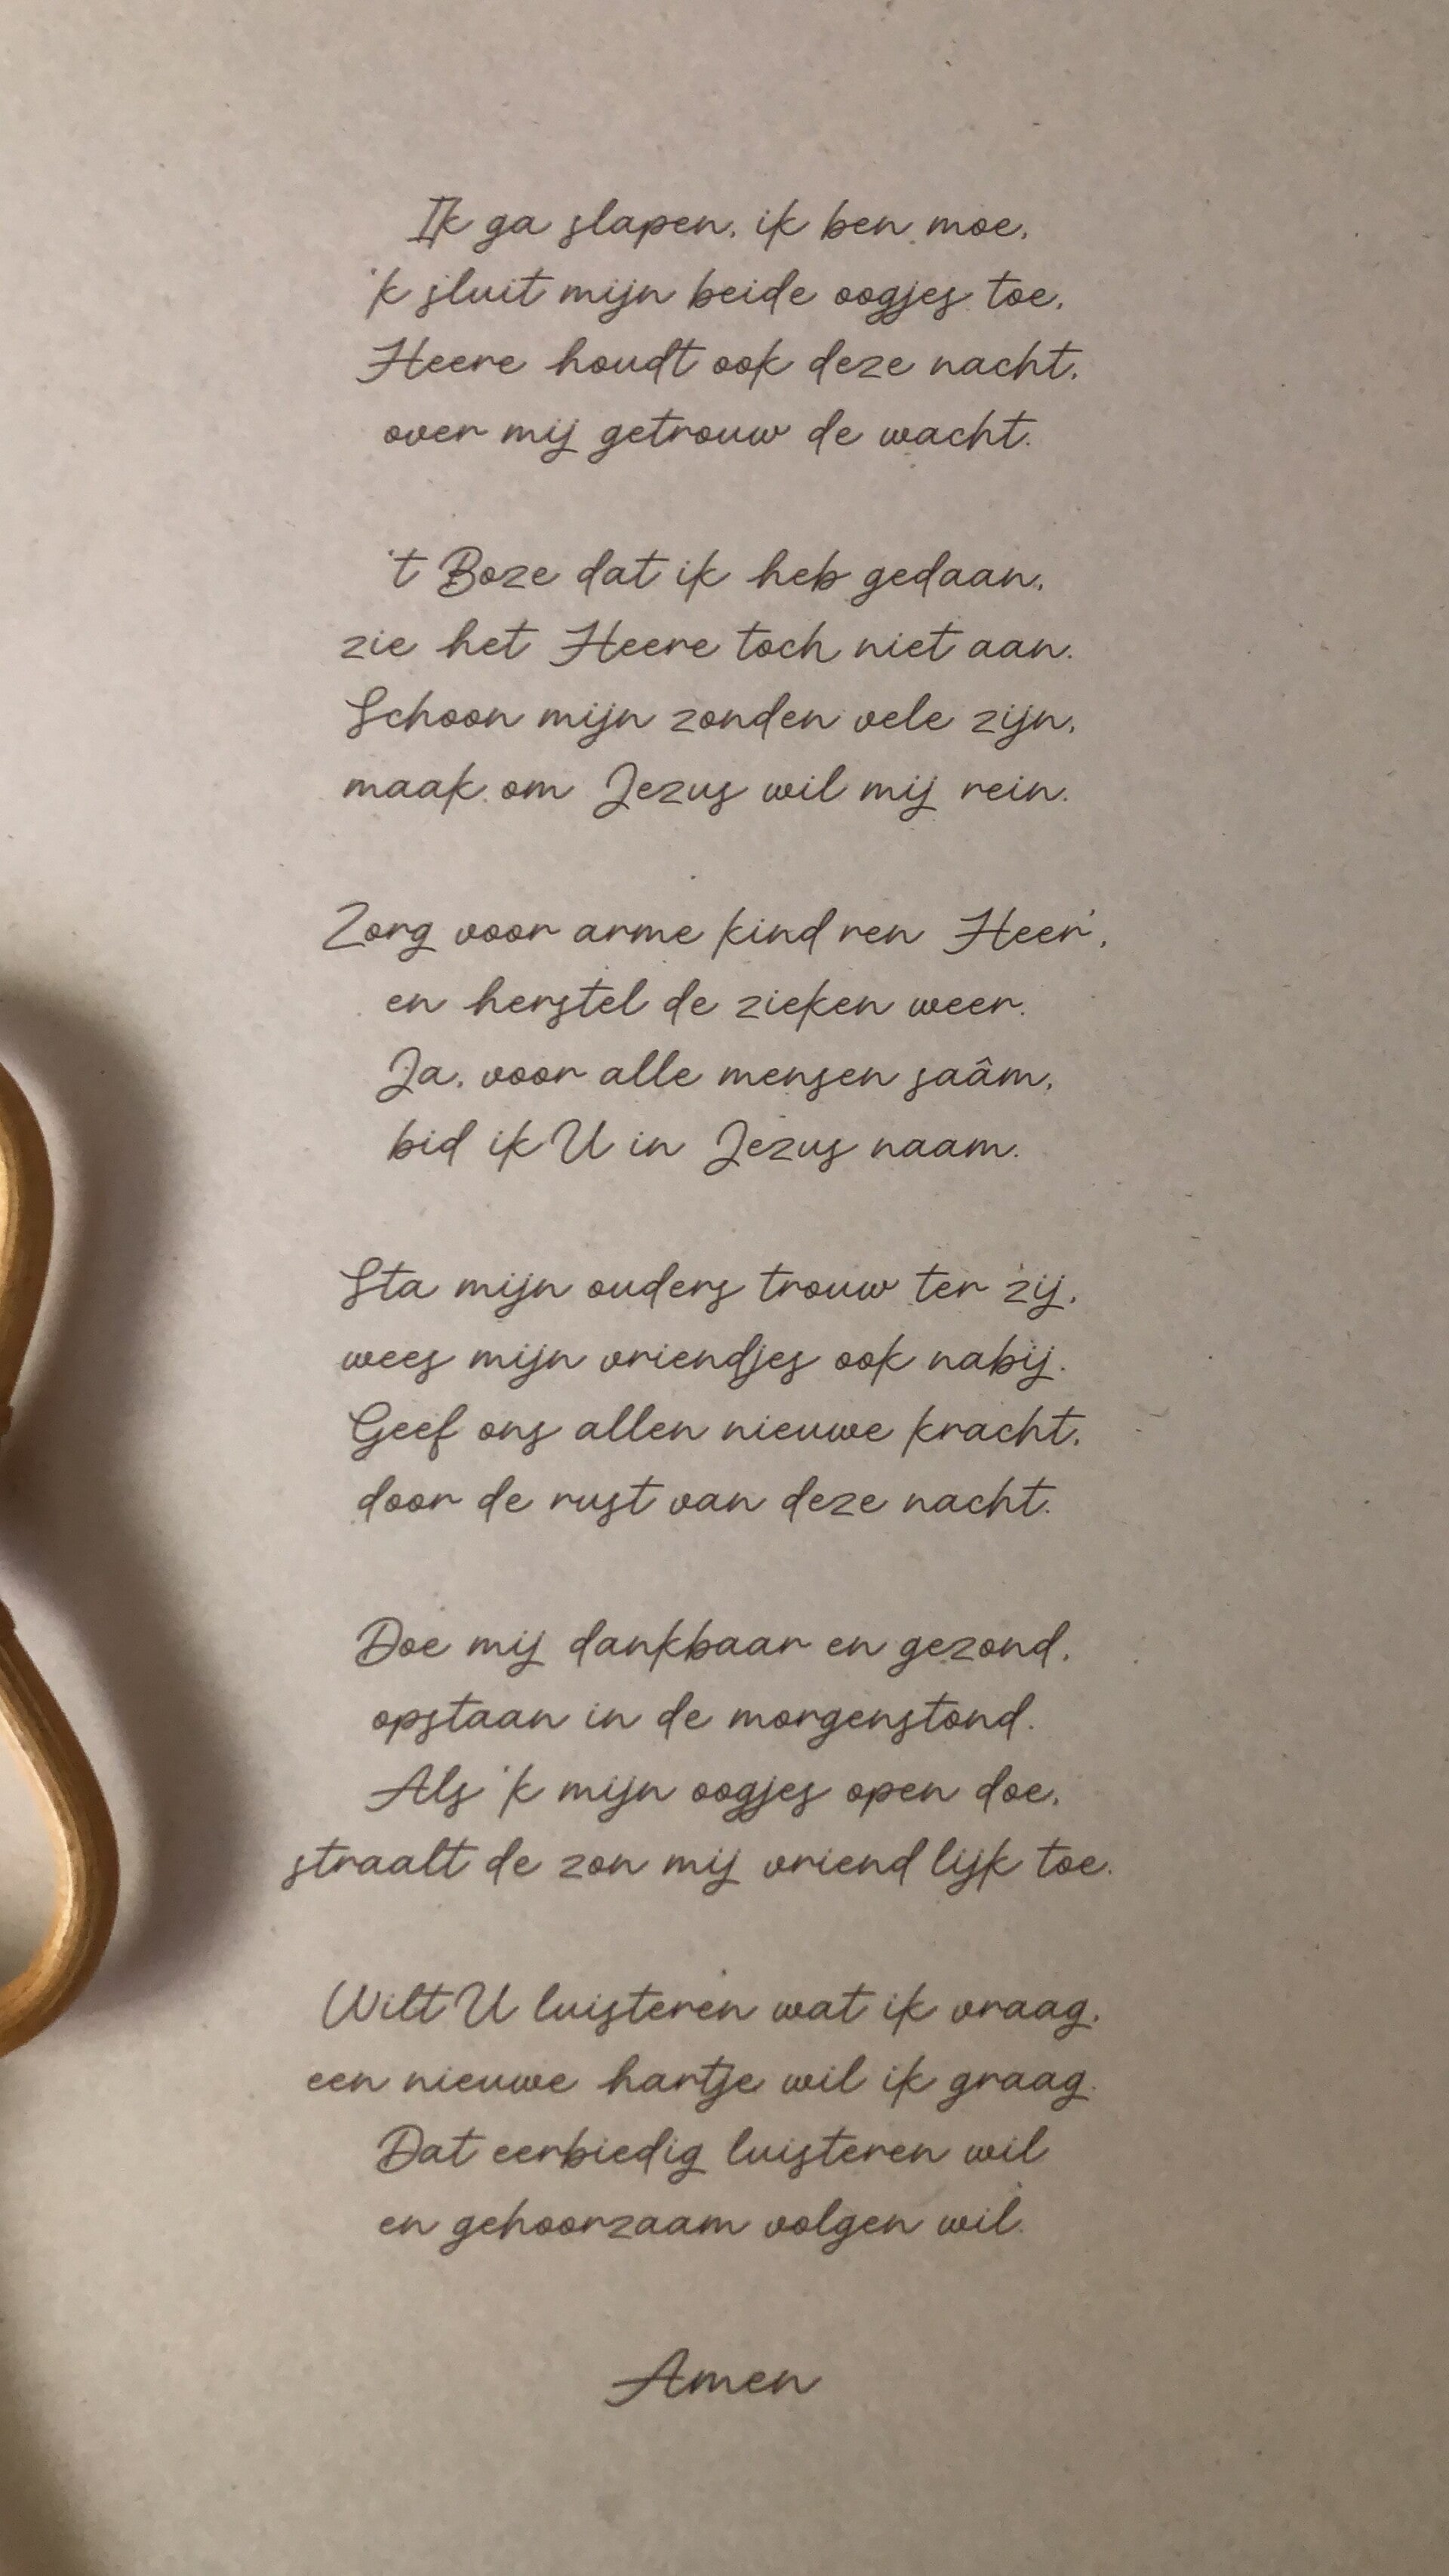 Ik ga slapen, ik ben moe,
'k sluit mijn beide oogjes toe,
Heere houdt ook deze nacht,
over mij getrouw de wacht.
't Boze dat ik heb gedaan,
zie het Heere toch niet aan.
Schoon mijn zonden vele zijn,
maak om Jezus wil mij rein.
Zorg voor arme kind ren Heer',
en herstel de zieken weer.
Ja, voor alle mensen saâm,
bid ik U in Jezus naam.
Sta mijn ouders trouw ter zij,
wees mijn vriendjes ook nabij.
Geef ons allen nieuwe kracht,
door de rust van deze nacht.
Doe mij dankbaar en gezond,
opstaan in de morgenstond.
Als 'k mijn oogjes open doe,
straalt de zon mij vriend lijk toe.
Wilt U luisteren wat ik vraag,
een nieuwe hartje wil ik graag.
Dat eerbiedig luisteren wil
en gehoorzaam volgen wil.
Amen